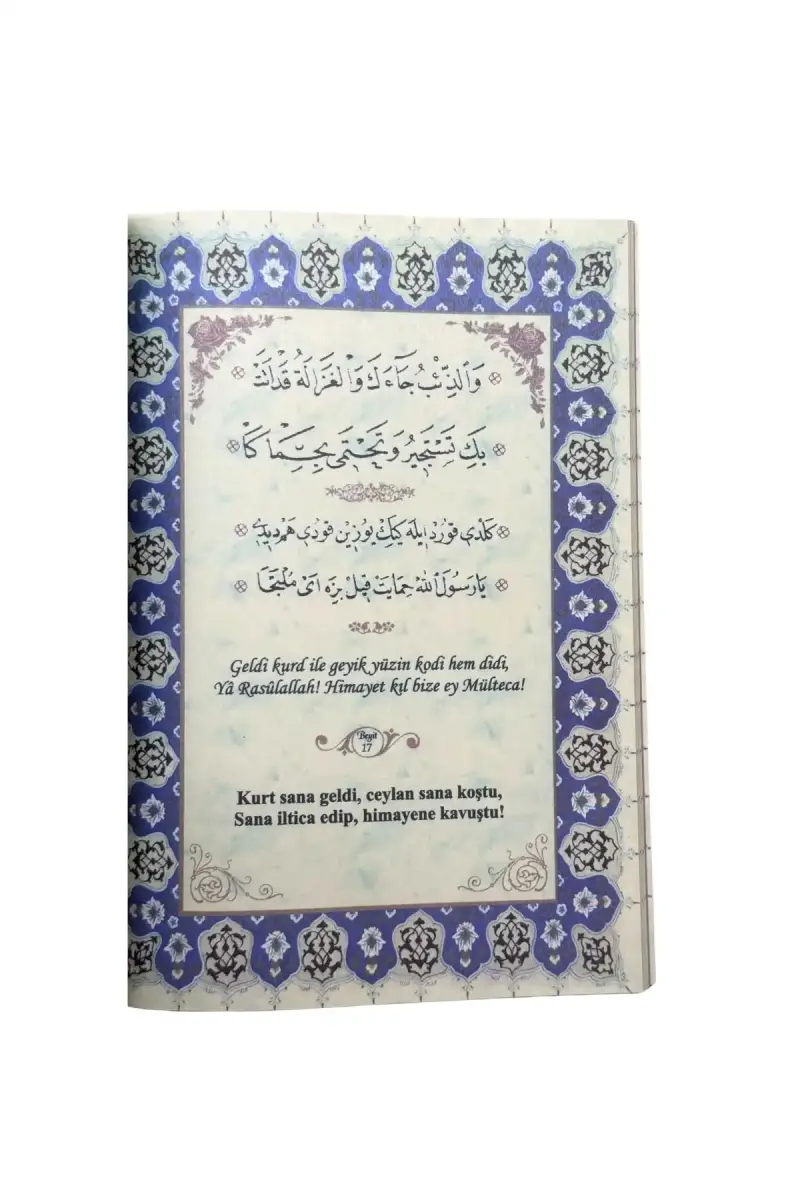 وَالذِّئْبُ جَآءَكَ وَالْغَزَالَةُ قَدْ اَتَتْ
بِكَ تَسْتَجِيرُ وَتَحْتَمِى بِحِمَاكَا
كلدى قورد ايله كيك يوزين قودى هم ديدى
يا رسول الله حمايت قيل بزه اى ملتجا
Geldi kurd ile geyik yüzin kodi hem didi,
Yâ Rasûlallah! Himayet kıl bize ey Mülteca!
Beyit
17
Kurt sana geldi, ceylan sana koştu,
Sana iltica edip, himayene kavuştu!